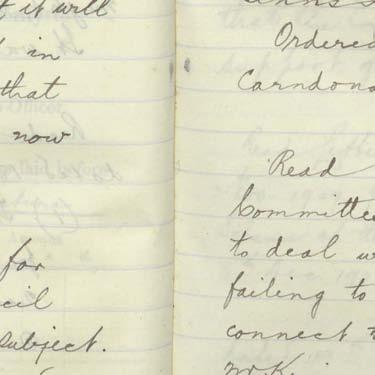 it will
in
that
now
for
cil
subject.
Ordered
Carndona
Read
Committee
to deal w
failing to
connect t
Mr K.